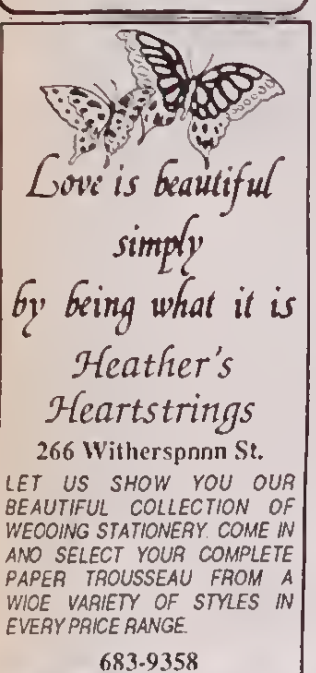 Love is beautiful
simply
by being what it is
Heather's
Heartstrings
266 Witherspoon St.
LET US SHOW YOU OUR
BEAUTIFUL COLLECTION OF
WEDDING STATIONERY. COME IN
AND SELECT YOUR COMPLETE
PAPER TROUSSEAU FROM A
WIDE VARIETY OF STYLES IN
EVERY PRICE RANGE.
683-9358